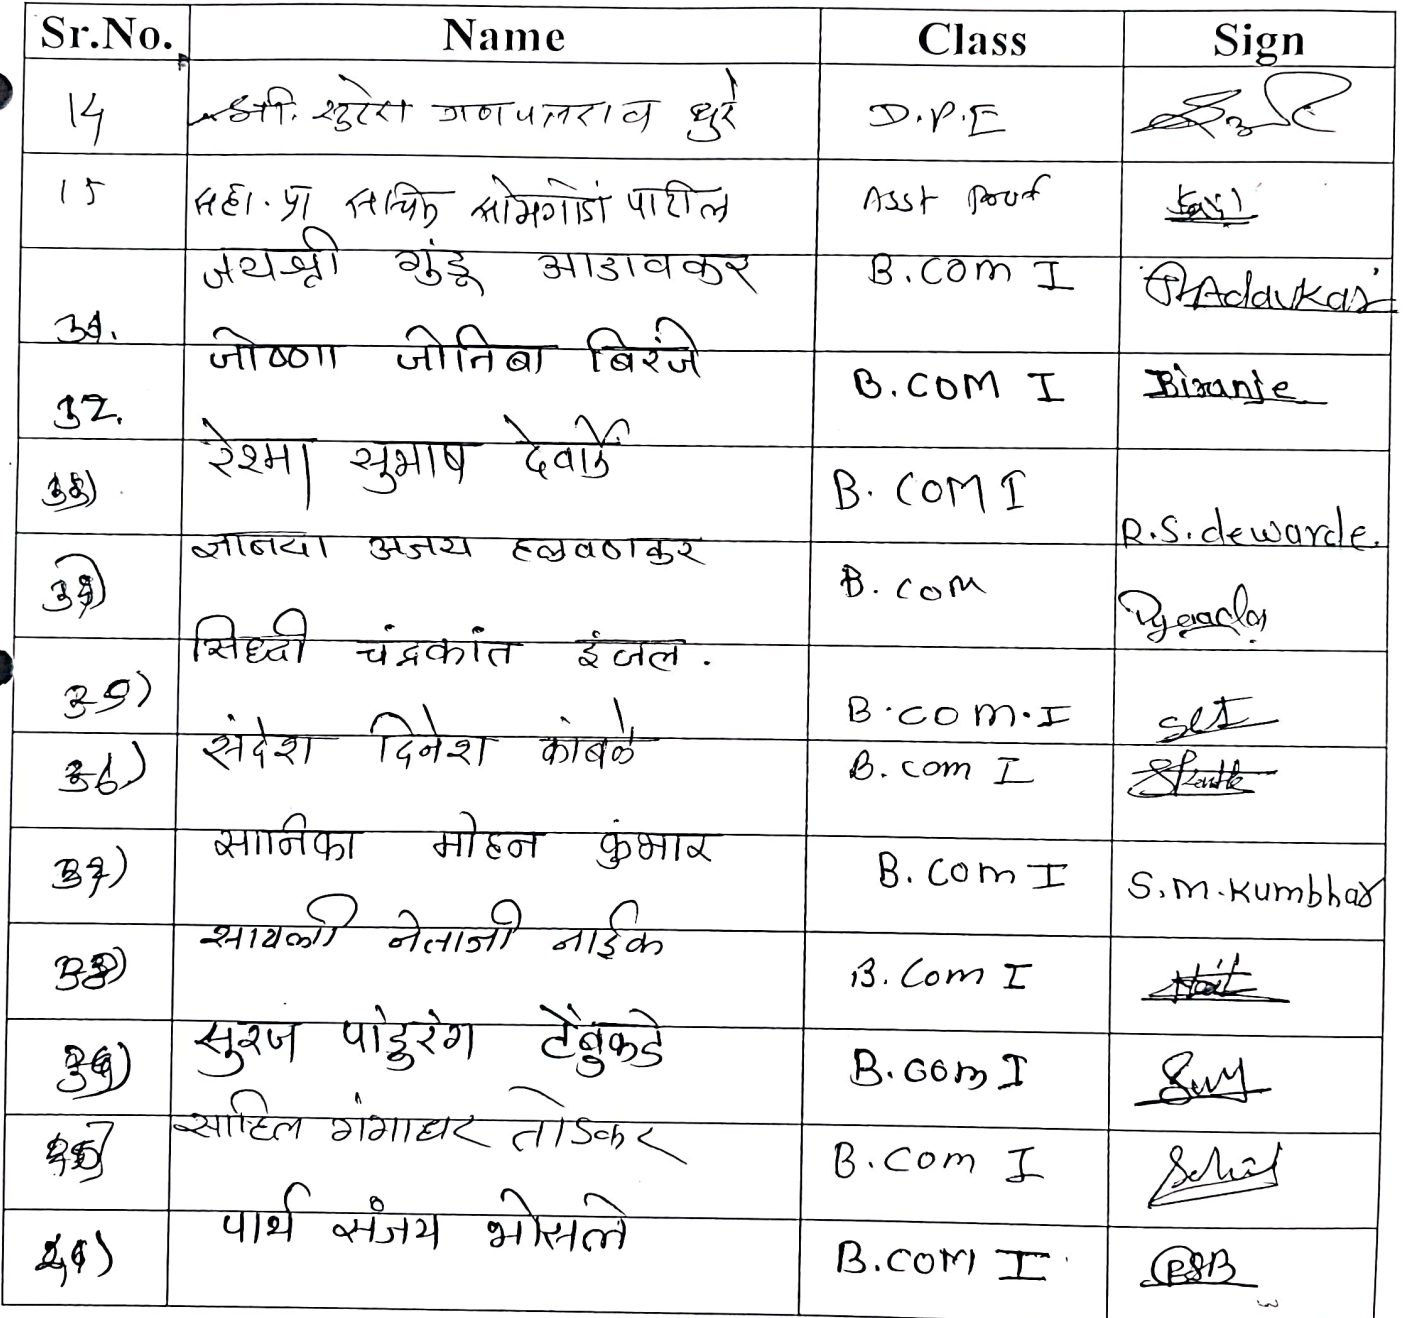 Sr.No. Name Class Sign
14 श्री. सुरेश गणपतराव धुरे D.P.E
15 सहा. प्रा सचिन सोमगोंडा पाटील Asst Prof
31. जयश्री गुंडू आडावकर B.COM I Adavkar
32. जोष्णा जोतिबा बिरंजे B.COM I Biranje
33) रेश्मा सुभाष देवार्डे B. COM I R.S.dewarde.
34) ज्ञानदा अजय हळवणकर B. COM
35) सिध्दी चंद्रकांत इंजल. B.COM.I SCI
36) संदेश दिनेश कांबळे B. com I
37) सानिका मोहन कुंभार B. Com I S.M.Kumbhar
38) सायली नेताजी नाईक B. Com I Naik
39) सुरज पांडुरंग टेंबुकडे B.com I
40) साहिल गंगाधर तोडकर B.com I Sahil
41) पार्थ संजय भोसले B.COM I PSB